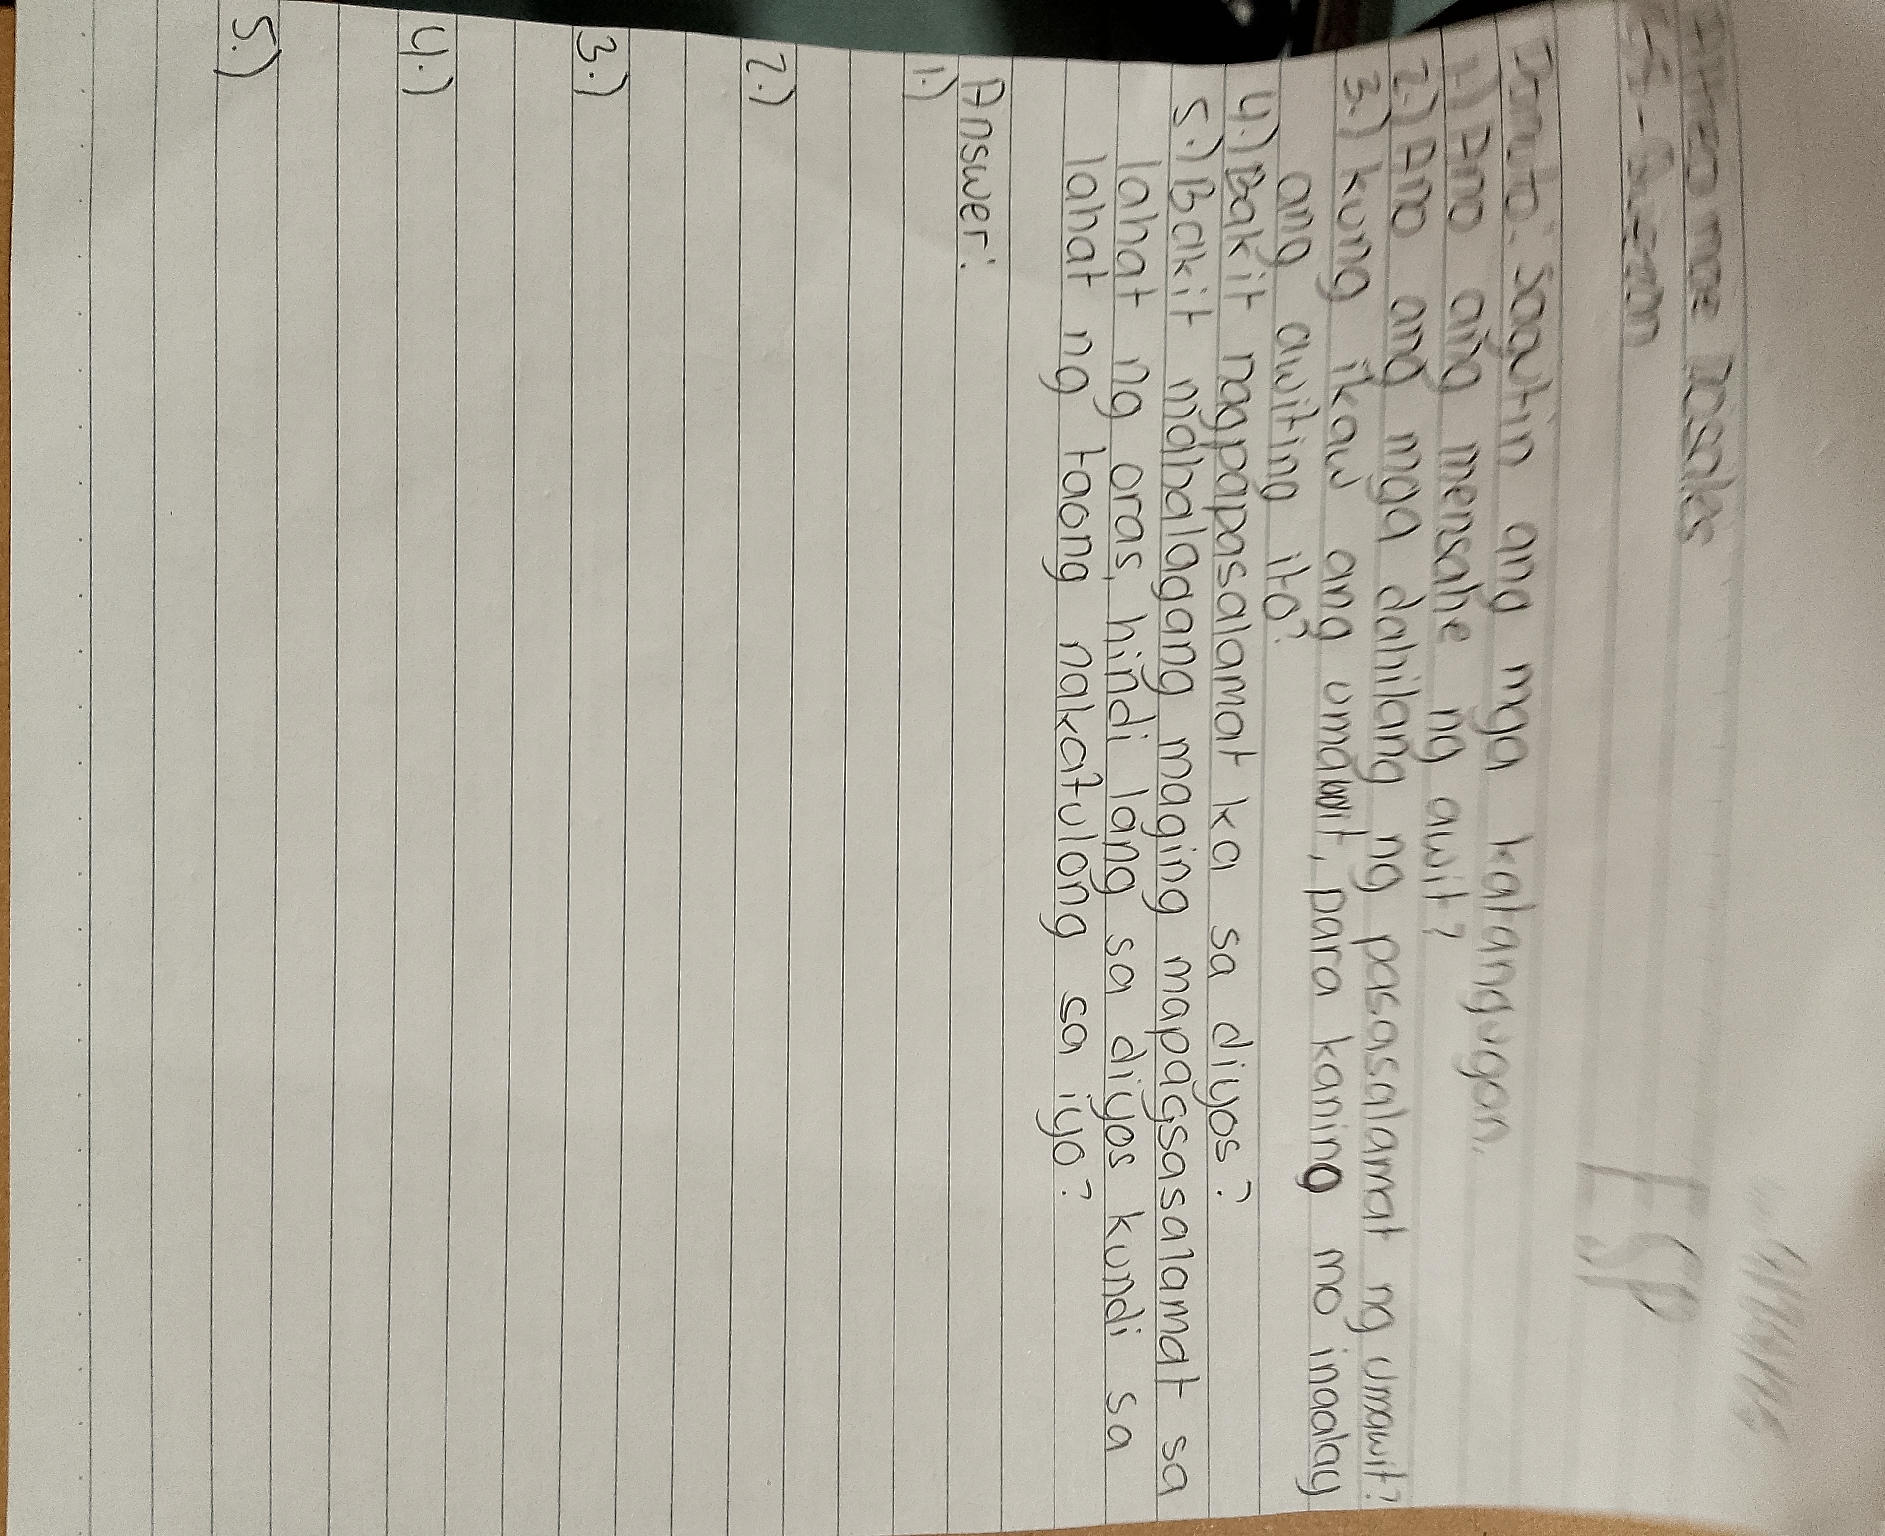 mae Rosales
ESP
Panuto: Sagutin ang mga katanungan.
1.) Ano ang mensahe ng awit?
2.) Ano ang mga dahilang ng pasasalamat ng umawit?
3.) kung ikaw ang umawit, para kaning mo inaalay
ang awiting ito?
4.) Bakit nagpapasalamat ka sa diyos?
5.) Bakit mahalagang maging mapagsasalamat sa
lahat ng oras, hindi lang sa diyos kundi sa
lahat ng taong nakatulong sa iyo?
Answer:
1.)
2.)
3.)
4.)
5.)